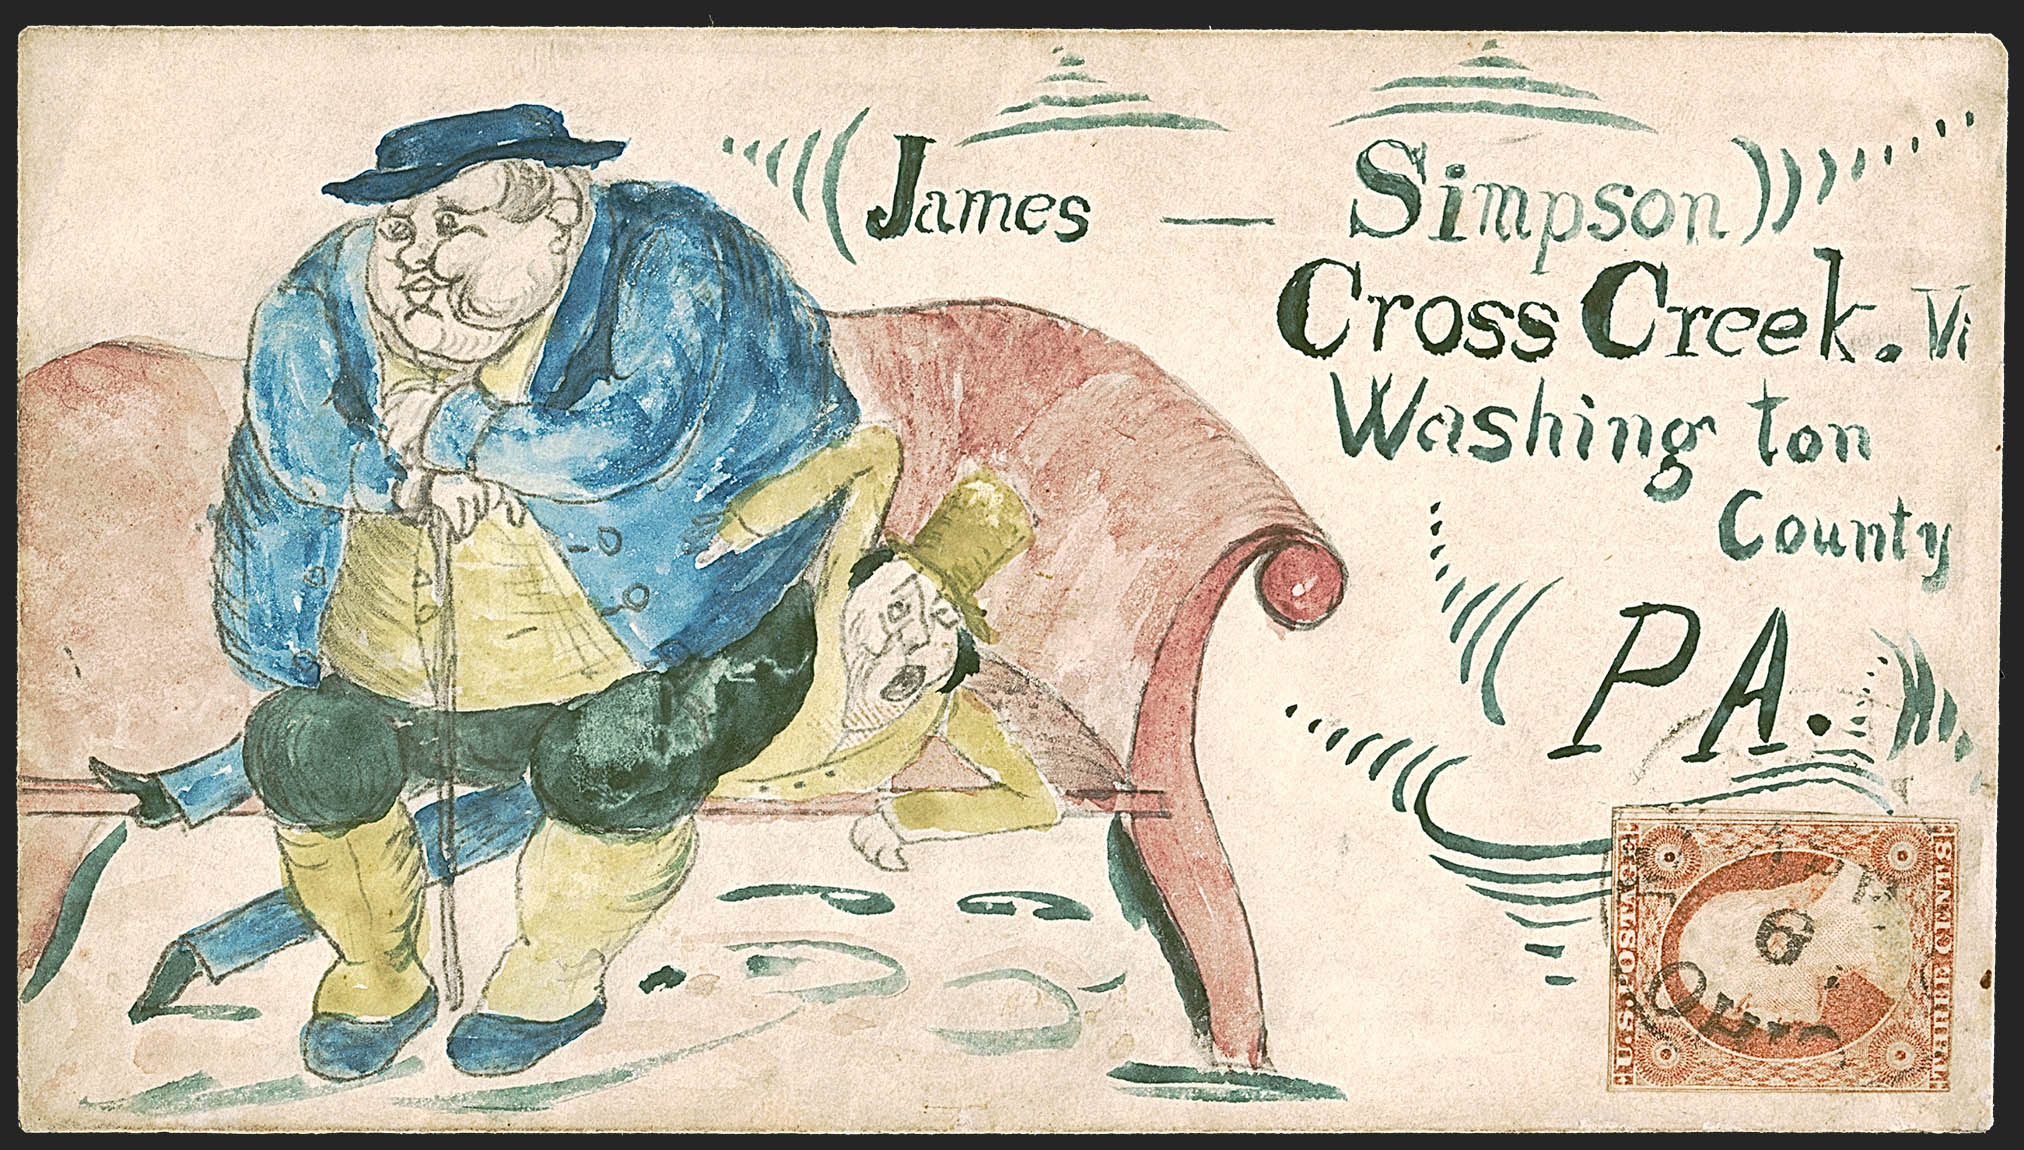 (James — Simpson)
Cross Creek. Vi
Washing ton
County
PA.
U.S. POSTAGE
THREE CENTS
6
OHIO